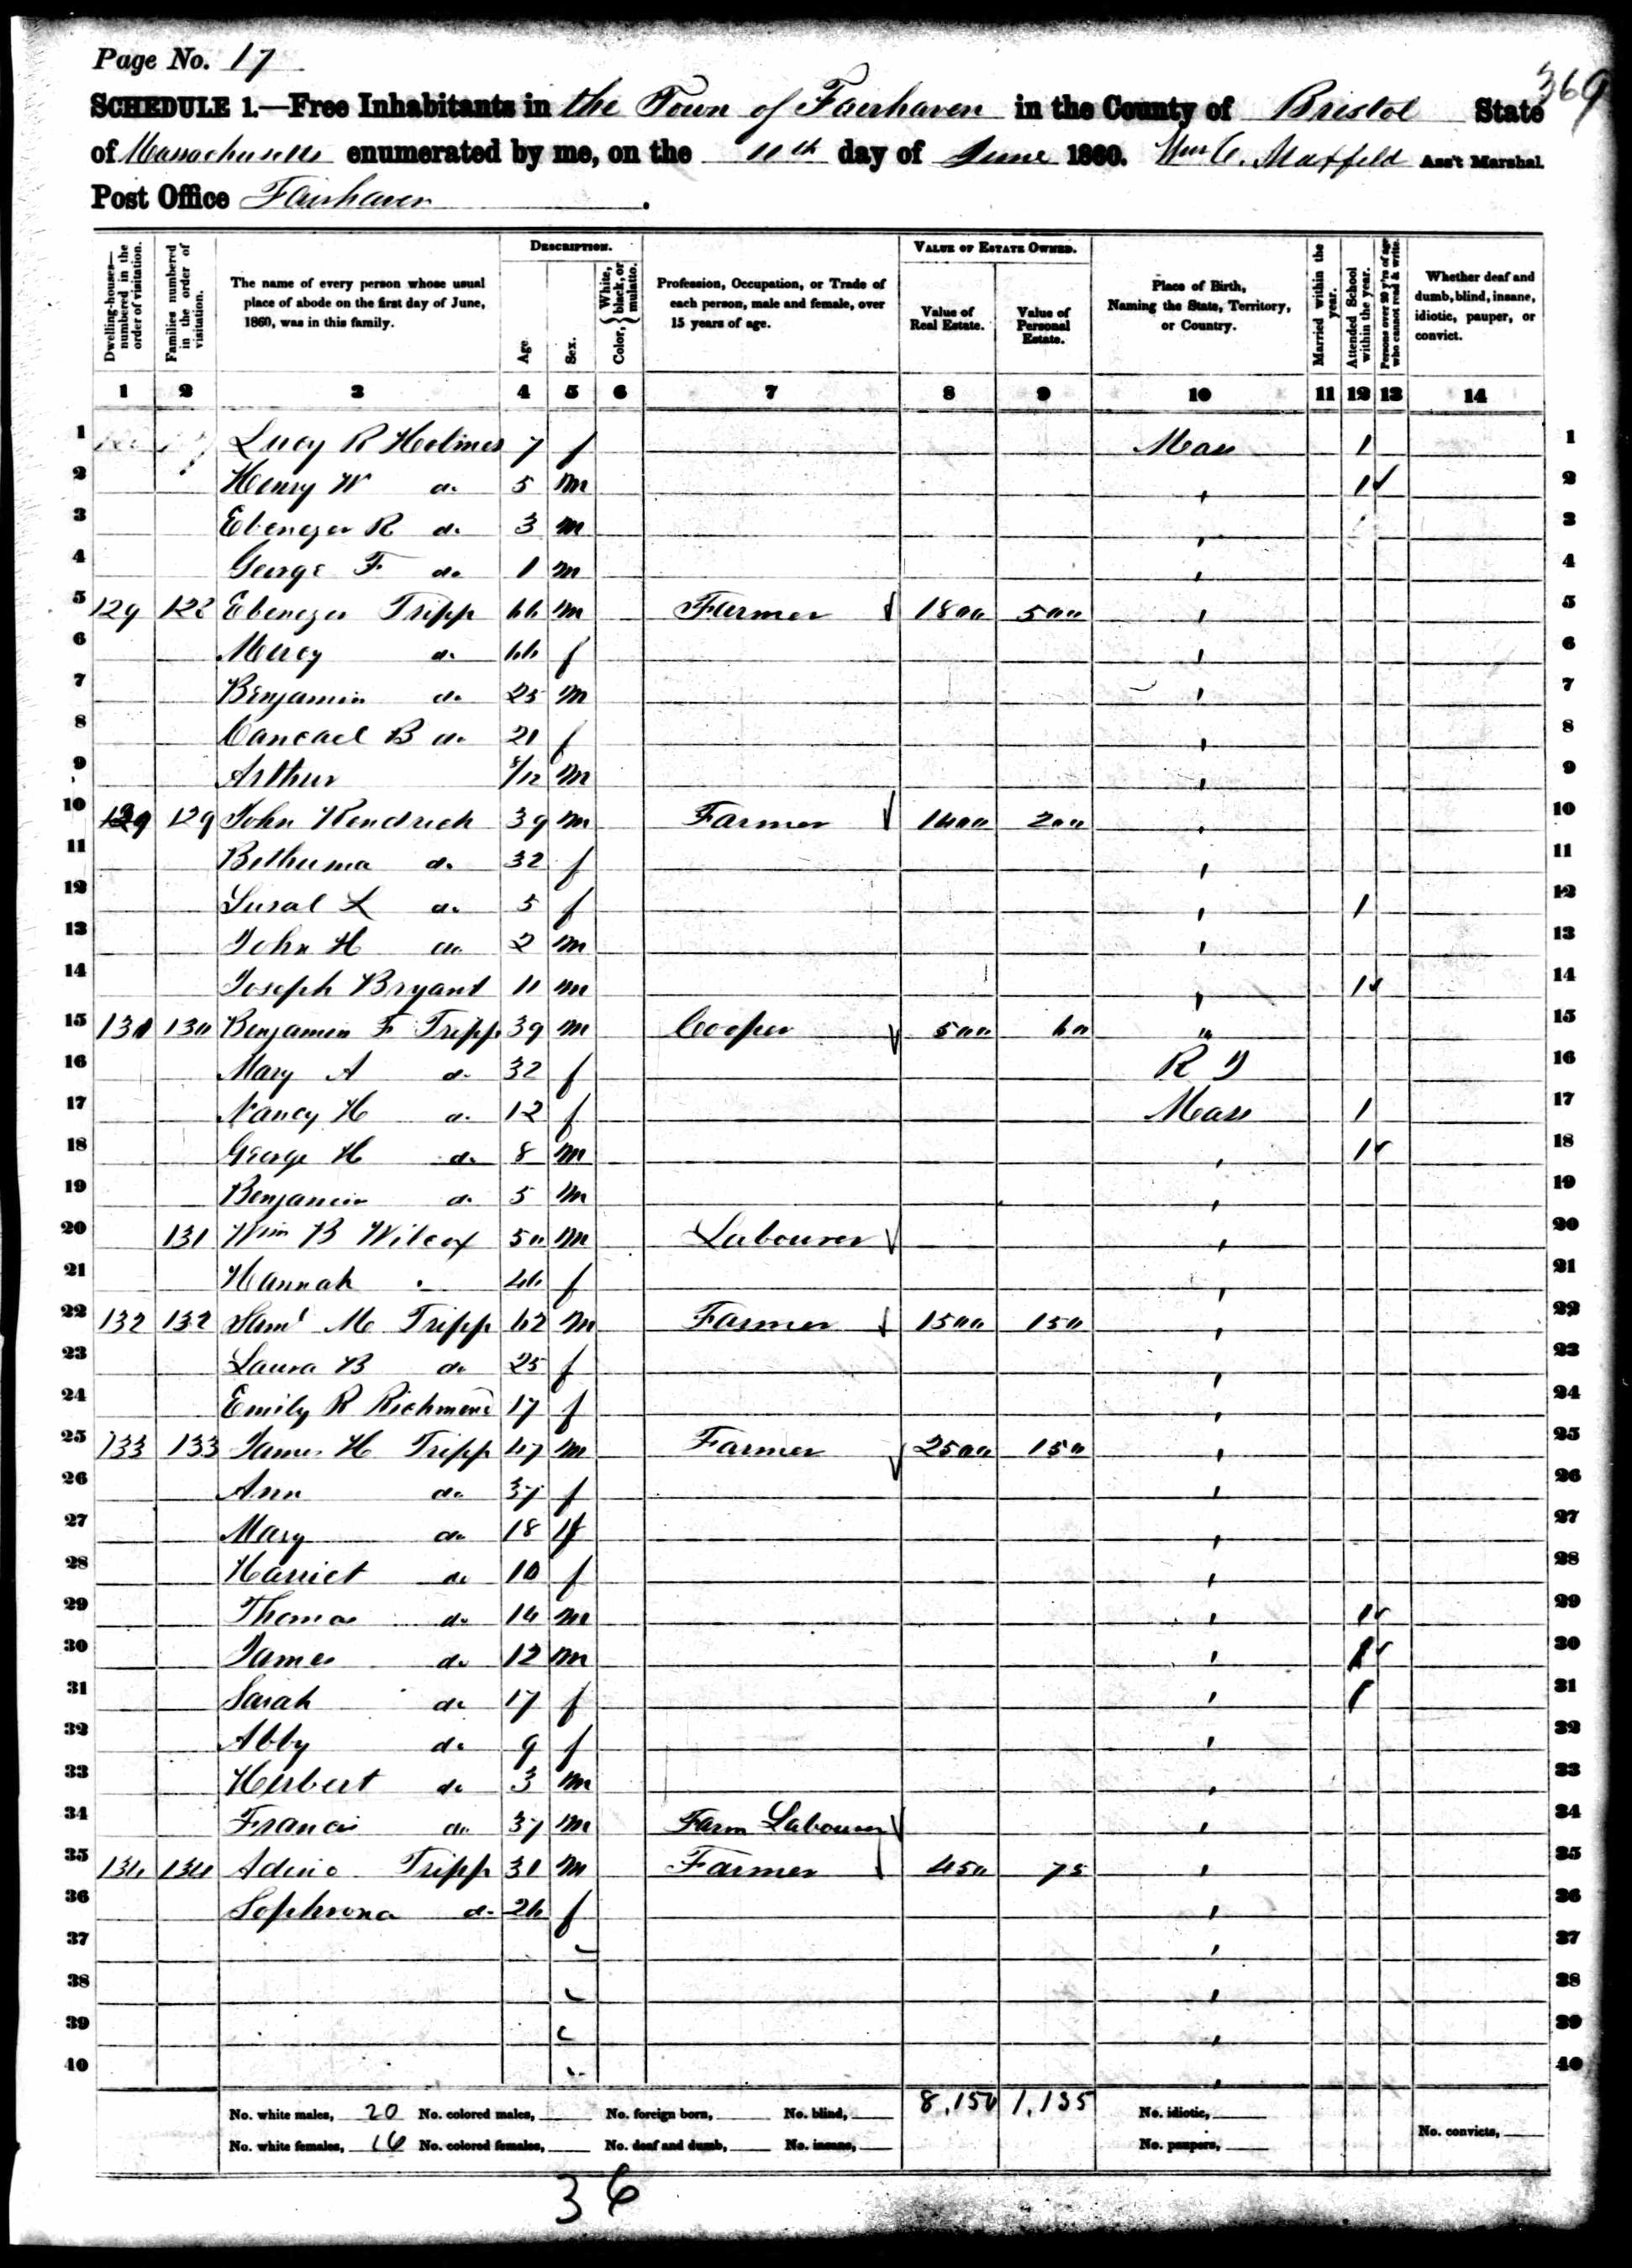 Page No. 17
369
SCHEDULE 1.—Free Inhabitants in the Town of Fairhaven in the County of Bristol State
of Massachusetts enumerated by me, on the 11th day of June 1860. Wm C. Maxfield Ass't Marshal.
Post Office Fairhaven.
Dwelling-houses—numbered in the order of visitation.
Families numbered in the order of visitation.
The name of every person whose usual place of abode on the first day of June, 1860, was in this family.
DESCRIPTION.
Age.
Sex.
Color, { White, black, or mulatto.
Profession, Occupation, or Trade of each person, male and female, over 15 years of age.
VALUE OF ESTATE OWNED.
Value of Real Estate.
Value of Personal Estate.
Place of Birth, Naming the State, Territory, or Country.
Married within the year.
Attended School within the year.
Persons over 20 y'rs of age who cannot read & write.
Whether deaf and dumb, blind, insane, idiotic, pauper, or convict.
1 2 3 4 5 6 7 8 9 10 11 12 13 14
1 Lucy R Holmes 7 f Mass 1 1
2 Henry W do 5 m " 1 2
3 Ebenezer R do 3 m " 3
4 George F do 1 m " 4
5 129 128 Ebenezer Tripp 66 m Farmer 1800 500 " 5
6 Mercy do 66 f " 6
7 Benjamin do 25 m " 7
8 B do 21 f " 8
9 Arthur /12 m " 9
10 129 129 John Kendrick 39 m Farmer 1400 200 " 10
11 do 32 f " 11
12 L do 5 f " 1 12
13 John H do 2 m " 13
14 Joseph Bryant 11 m " 1 14
15 130 130 Benjamin F Tripp 39 m Cooper 500 60 " 15
16 Mary A do 32 f R I 16
17 Nancy H do 12 f Mass 1 17
18 George H do 8 m " 1 18
19 Benjamin do 5 m " 19
20 131 Wm B Wilcox 50 m Labourer " 20
21 Hannah " 46 f " 21
22 132 132 Saml M Tripp 62 m Farmer 1500 150 " 22
23 Laura B do 25 f " 23
24 Emily R Richmond 17 f " 24
25 133 133 James H Tripp 47 m Farmer 2500 150 " 25
26 Ann do 37 f " 26
27 Mary do 18 f " 27
28 Harriet do 10 f " 28
29 Thomas do 14 m " 1 29
30 James do 12 m " 1 30
31 Sarah do 17 f " 1 31
32 Abby do 9 f " 32
33 Herbert do 3 m " 33
34 Francis do 37 m Farm Labourer " 34
35 134 134 Tripp 31 m Farmer 450 75 " 35
36 Sophrona do 26 f " 36
37 " 37
38 " 38
39 " 39
40 " 40
No. white males, 20 No. colored males, No. foreign born, No. blind, 8,150 1,135 No. idiotic,
No. white females, 16 No. colored females, No. deaf and dumb, No. insane, No. paupers, No. convicts,
36